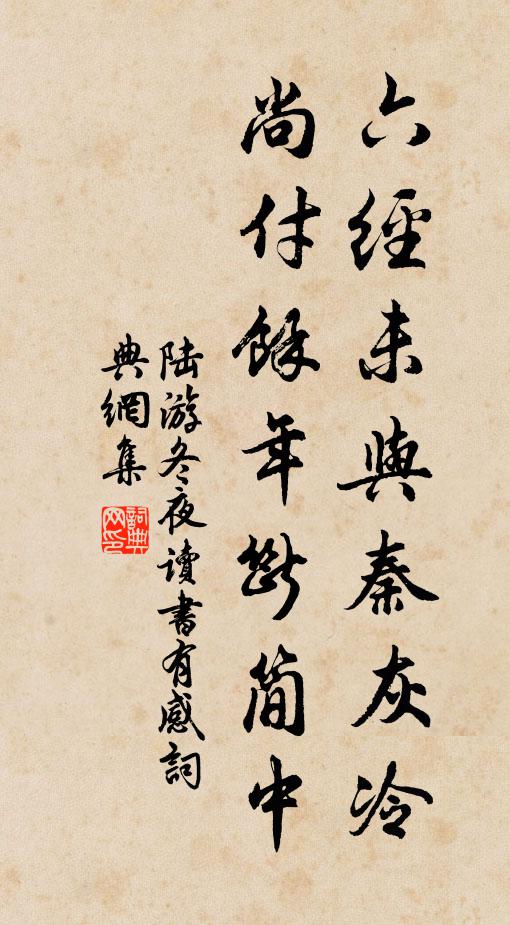 六經未與秦灰冷
尚付餘年斷簡中
陸游冬夜讀書有感詞
典網集
詞典網印